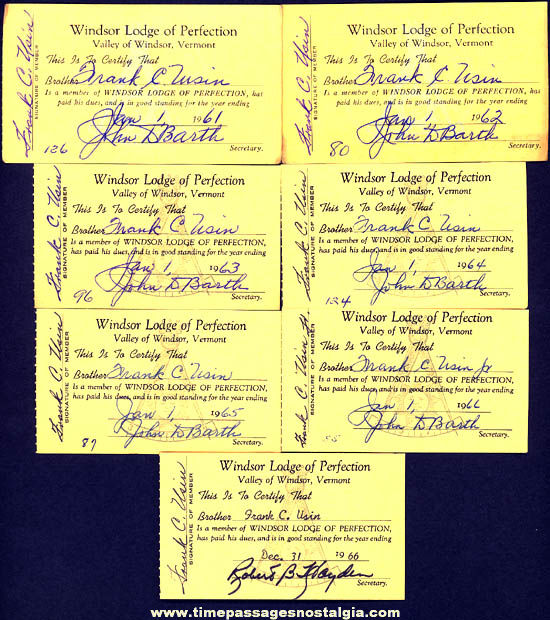 Frank C. Usin
SIGNATURE OF MEMBER
Windsor Lodge of Perfection
Valley of Windsor, Vermont
This Is To Certify That
Brother Frank C Usin
Is a member of WINDSOR LODGE OF PERFECTION, has
paid his dues, and is in good standing for the year ending
Jan 1 1961
John D Barth
126 Secretary.
Frank C. Usin
SIGNATURE OF MEMBER
Windsor Lodge of Perfection
Valley of Windsor, Vermont
This Is To Certify That
Brother Frank C Usin
Is a member of WINDSOR LODGE OF PERFECTION, has
paid his dues, and is in good standing for the year ending
Jan 1 1962
John D Barth
80 Secretary.
Frank C. Usin
SIGNATURE OF MEMBER
Windsor Lodge of Perfection
Valley of Windsor, Vermont
This Is To Certify That
Brother Frank C. Usin
Is a member of WINDSOR LODGE OF PERFECTION,
has paid his dues, and is in good standing for the year ending
Jan 1, 1963
John D Barth
96 Secretary.
Frank C. Usin
SIGNATURE OF MEMBER
Windsor Lodge of Perfection
Valley of Windsor, Vermont
This Is To Certify That
Brother Frank C. Usin
Is a member of WINDSOR LODGE OF PERFECTION,
has paid his dues, and is in good standing for the year ending
Jan 1, 1964
John D Barth
134 Secretary.
Frank C. Usin
SIGNATURE OF MEMBER
Windsor Lodge of Perfection
Valley of Windsor, Vermont
This Is To Certify That
Brother Frank C. Usin
Is a member of WINDSOR LODGE OF PERFECTION,
has paid his dues, and is in good standing for the year ending
Jan 1, 1965
John D Barth
87 Secretary.
Frank C. Usin Jr.
SIGNATURE OF MEMBER
Windsor Lodge of Perfection
Valley of Windsor, Vermont
This Is To Certify That
Brother Frank C Usin Jr
Is a member of WINDSOR LODGE OF PERFECTION,
has paid his dues, and is in good standing for the year ending
Jan 1, 1966
John D Barth
Secretary.
Frank C. Usin
SIGNATURE OF MEMBER
Windsor Lodge of Perfection
Valley of Windsor, Vermont
This Is To Certify That
Brother Frank C. Usin
Is a member of WINDSOR LODGE OF PERFECTION,
has paid his dues, and is in good standing for the year ending
Dec. 31 1966
Robert B. Hayden
Secretary.
www.timepassagesnostalgia.com